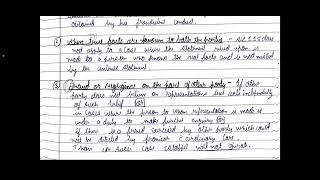 obtained by his fraudulent conduct.
② When true facts are known to both the parties - Sec 115 does
not apply to a case where the statement relied upon is
made to a person who knows the real facts and is not misled
by the untrue statement.
③ Fraud or negligence on the part of other party - If other
party does not believe on representations but acts independently
of such belief [or]
in cases where the person to whom representation is made is
under a duty to make further enquiry [or]
if there is a fraud carried by other party which could
not be detected by promisor c ordinary care.
Then in such case estoppel will not operate.